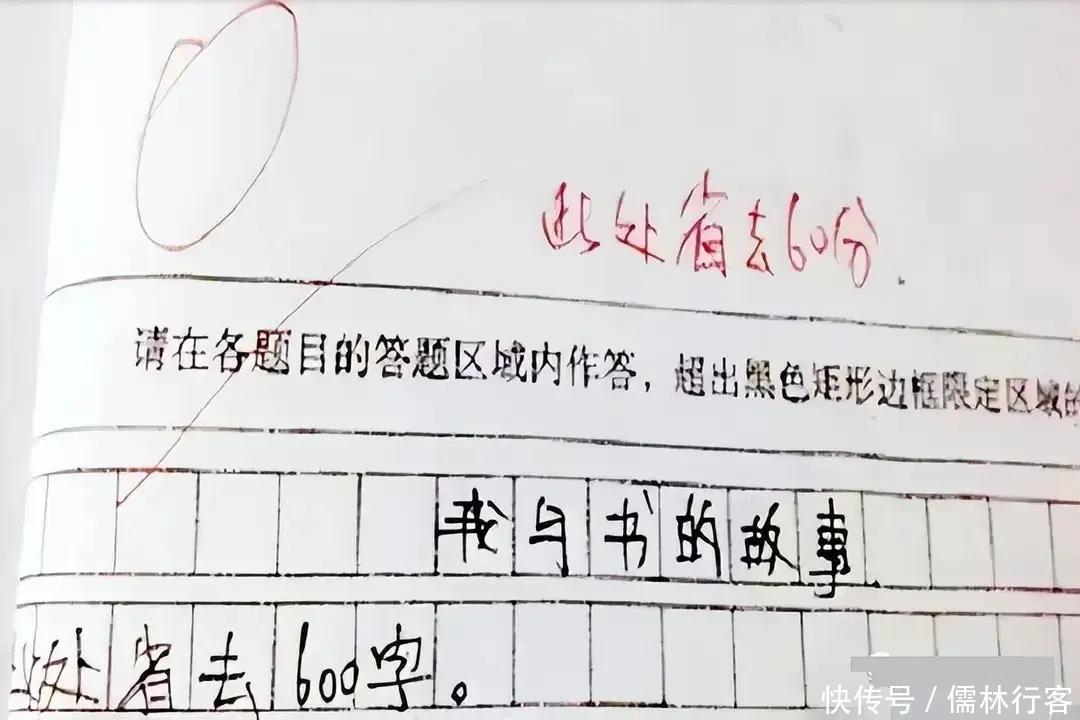 此处省去60分.
请在各题目的答题区域内作答，超出黑色矩形边框限定区域的
我与书的故事
此处省去600字。
快传号/儒林行客